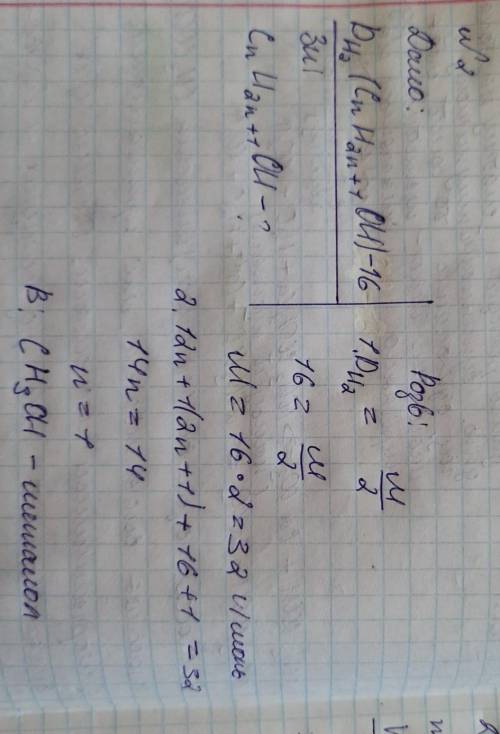 №2
Дано:
D H₂ (CnH2n+1OH) - 16
Зн:
CnH2n+1OH - ?
Розв:
1. D H₂ = M/2
16 = M/2
M = 16 · 2 = 32 г/моль
2. 12n + 1(2n+1) + 16 + 1 = 32
14n = 14
n = 1
В: CH₃OH - метанол